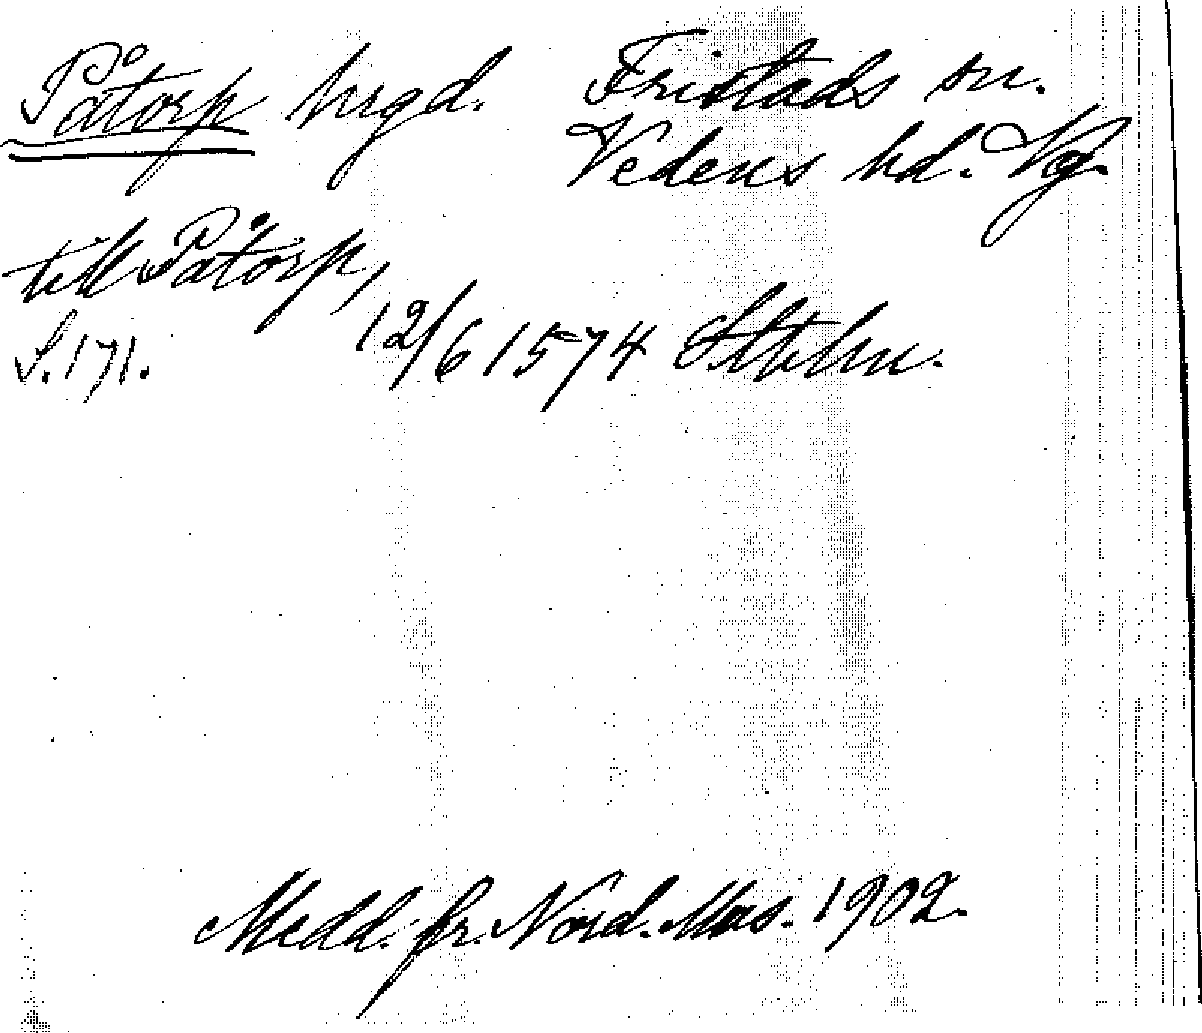 Påtorp hrgd. Fristads sn.
Vedens hd. Vg.
till Påtorp,
S. 171. 12/6 1574 Sthlm.
Medd. fr. Nord. Mus. 1902.